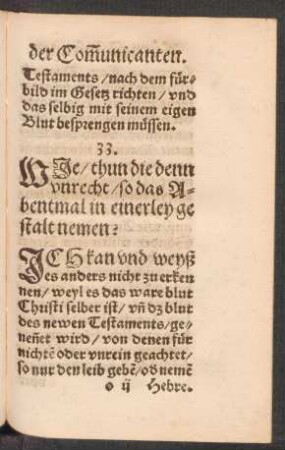 der Com̃unicanten.
Testaments/nach dem für⸗
bild im Gesetz richten/vnd
das selbig mit seinem eigen
Blut besprengen müssen.
33.
WJe/thun die denn
vnrecht/so das A⸗
bentmal in einerley ge
stalt nemen?
JCH kan vnd weyß
es anders nicht zu erken
nen/weyl es das ware blut
Christi selber ist/vñ dz blut
des newen Testaments/ge⸗
neñet wird/von denen für
nichtẽ oder vnrein geachtet/
so nur den leib gebẽ/od nemẽ
o ij Hebre.